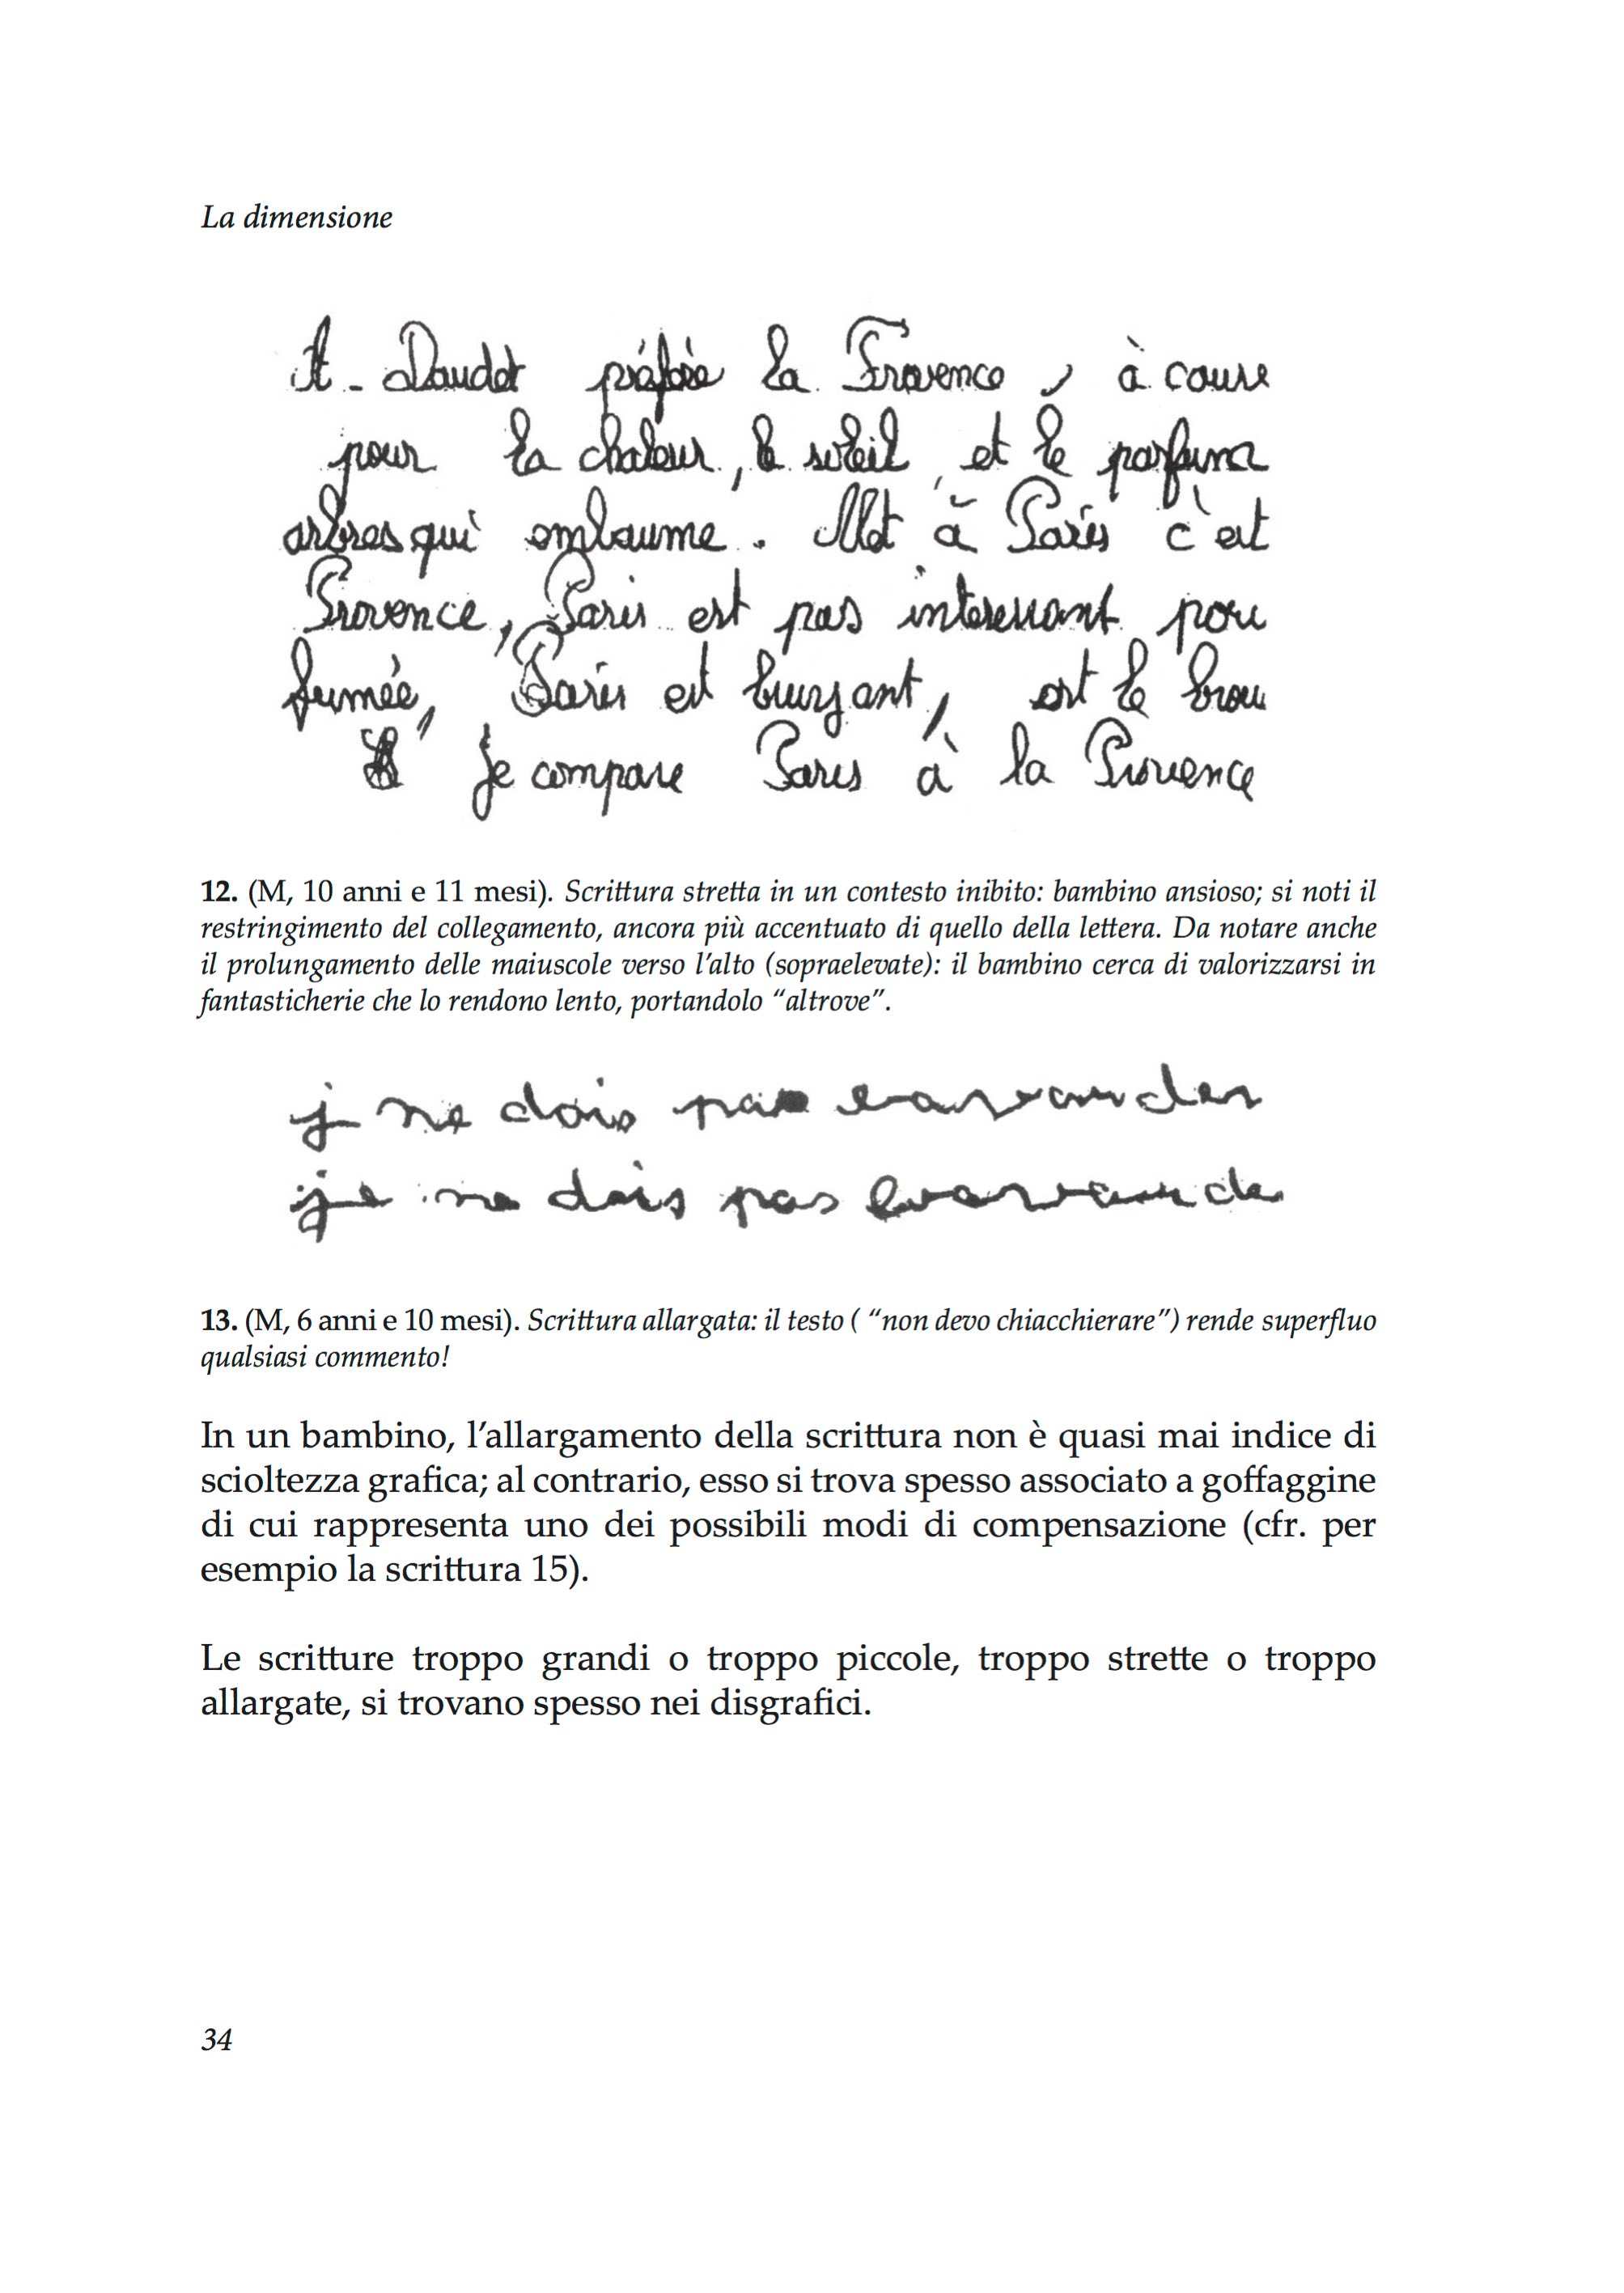 La dimensione
A - Daudet préfère la Provence, à cause
pour la chaleur, le soleil, et le parfum
arbres qui embaume. Met à Paris c'est
Provence, Paris est pas interessant pou
fumée, Paris est bruyant, est le brou
Je compare Paris à la Provence
12. (M, 10 anni e 11 mesi). Scrittura stretta in un contesto inibito: bambino ansioso; si noti il
restringimento del collegamento, ancora più accentuato di quello della lettera. Da notare anche
il prolungamento delle maiuscole verso l'alto (sopraelevate): il bambino cerca di valorizzarsi in
fantasticherie che lo rendono lento, portandolo "altrove".
j ne dois pas
je ne dois pas
13. (M, 6 anni e 10 mesi). Scrittura allargata: il testo ( "non devo chiacchierare") rende superfluo
qualsiasi commento!
In un bambino, l'allargamento della scrittura non è quasi mai indice di
scioltezza grafica; al contrario, esso si trova spesso associato a goffaggine
di cui rappresenta uno dei possibili modi di compensazione (cfr. per
esempio la scrittura 15).
Le scritture troppo grandi o troppo piccole, troppo strette o troppo
allargate, si trovano spesso nei disgrafici.
34